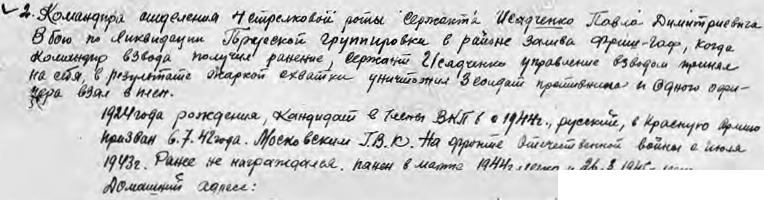 2. Командира отделения 4 стрелковой роты сержанта Исадченко Павла Димитриевича
В бою по ликвидации группировки в районе залива Фриш-Гаф, когда
командир взвода получил ранение, сержант Исадченко управление взводом принял
на себя, в результате жаркой схватки уничтожил 3 солдат противника и одного офи-
цера взял в плен.
1924 года рождения, кандидат в члены ВКП б с 1944г., русский, в Красную Армию
призван 6.7.42 года. Московским Г.В.К. На фронте Отечественной войны с июля
1943г. Ранее не награждался. ранен в марте 1944г легко и 26.3.1945г
Домашний адрес: